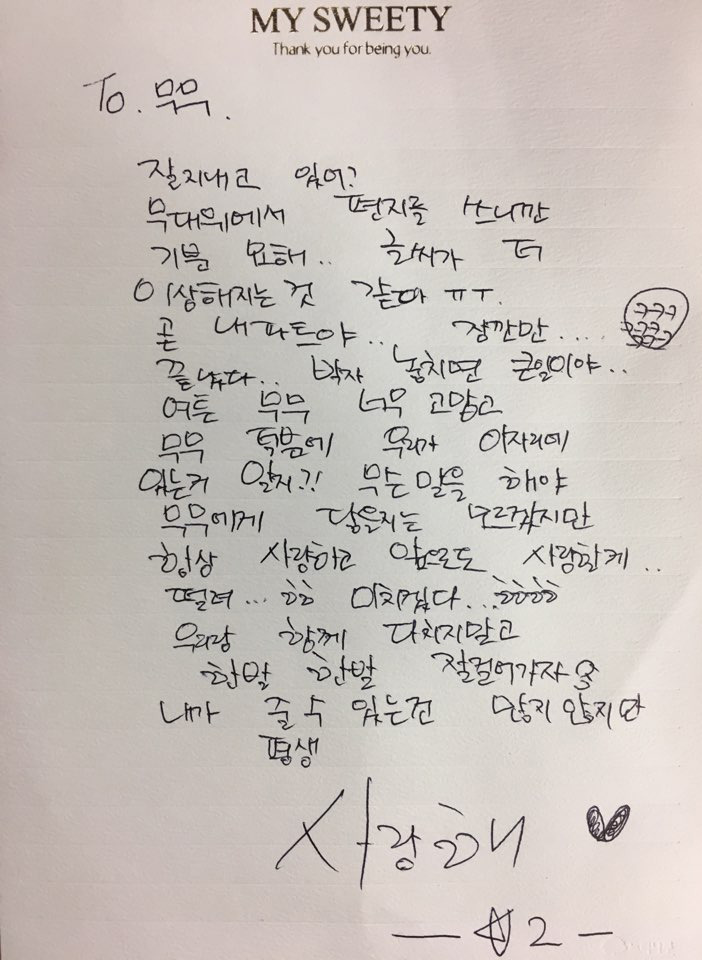 MY SWEETY
Thank you for being you.
To. 무무.
잘지내고 있어?
무대위에서 편지를 쓰니깐
기분 묘해.. 글씨가 더
이상해지는 것 같아 ㅠㅜ.
곧 내파트야.. 잠깐만....
ㅋㅋㅋ
ㅋㅋㅋ
끝났다.. 박자 놓치면 큰일이야..
여튼 무무 너무 고맙고
무무 덕분에 우리가 이자리에
있는거 알지?! 무슨 말을 해야
무무에게 닿을지는 모르겠지만
항상 사랑하고 앞으로도 사랑할게..
떨려... ㅎㅎ 미치겠다...ㅎㅎㅎㅎ
우리랑 함께 다치지말고
한발 한발 잘걸어가자
내가 줄 수 있는건 많지 않지만
평생
사랑해